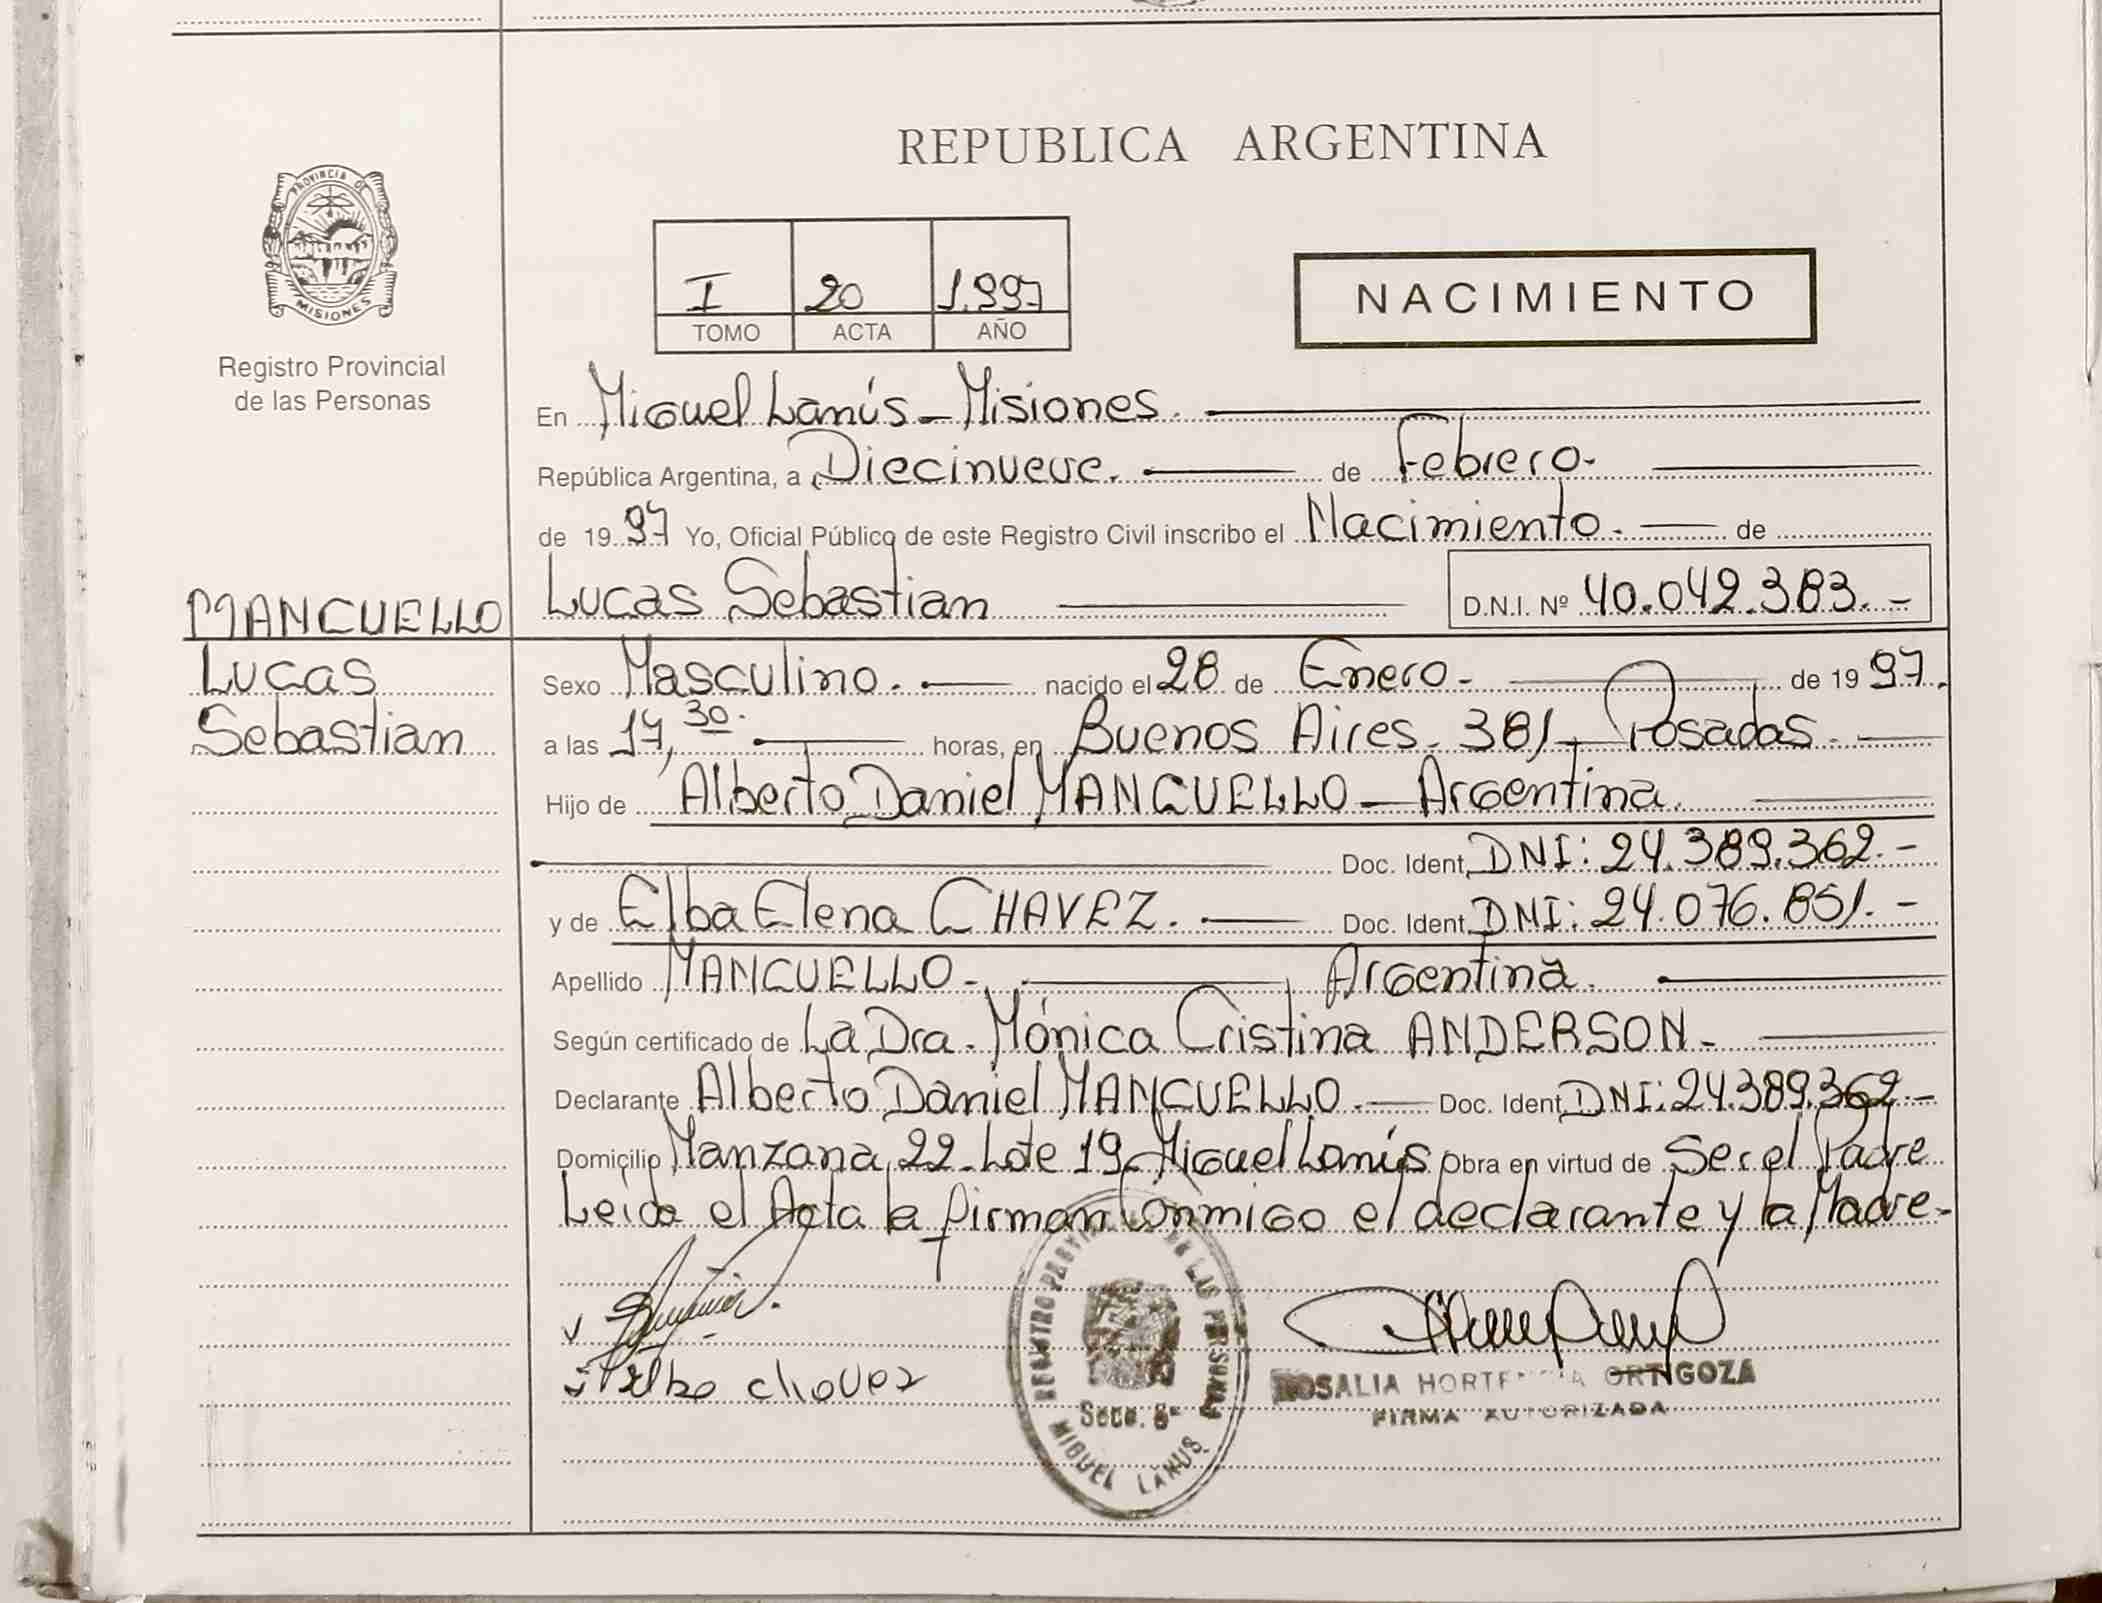 REPUBLICA ARGENTINA
PROVINCIA DE MISIONES
Registro Provincial
de las Personas
I 20 1.997
TOMO ACTA AÑO
NACIMIENTO
En Miguel Lanús - Misiones.
República Argentina, a Diecinueve. de Febrero.
de 1997 Yo, Oficial Público de este Registro Civil inscribo el Nacimiento. de
MANCUELLO Lucas Sebastian D.N.I. Nº 40.042.383.-
Lucas
Sebastian
Sexo Masculino. nacido el 28 de Enero. de 1997.
a las 17,30. horas, en Buenos Aires. 381 - Posadas.
Hijo de Alberto Daniel MANCUELLO - Argentina.
Doc. Ident. DNI: 24.389.362.-
y de Elba Elena CHAVEZ. Doc. Ident. DNI: 24.076.851.-
Apellido MANCUELLO. Argentina.
Según certificado de La Dra. Mónica Cristina ANDERSON.
Declarante Alberto Daniel MANCUELLO. Doc. Ident. DNI: 24.389.362-
Domicilio Manzana 22 - Lote 19 - Miguel Lanús Obra en virtud de Ser el Padre
Leída el Acta la firman Conmigo el declarante y la Madre-
Elba Chavez
REGISTRO PROVINCIAL DE LAS PERSONAS
Secc. 8ª
MIGUEL LANUS
ROSALIA HORTENCIA ORTIGOZA
FIRMA AUTORIZADA